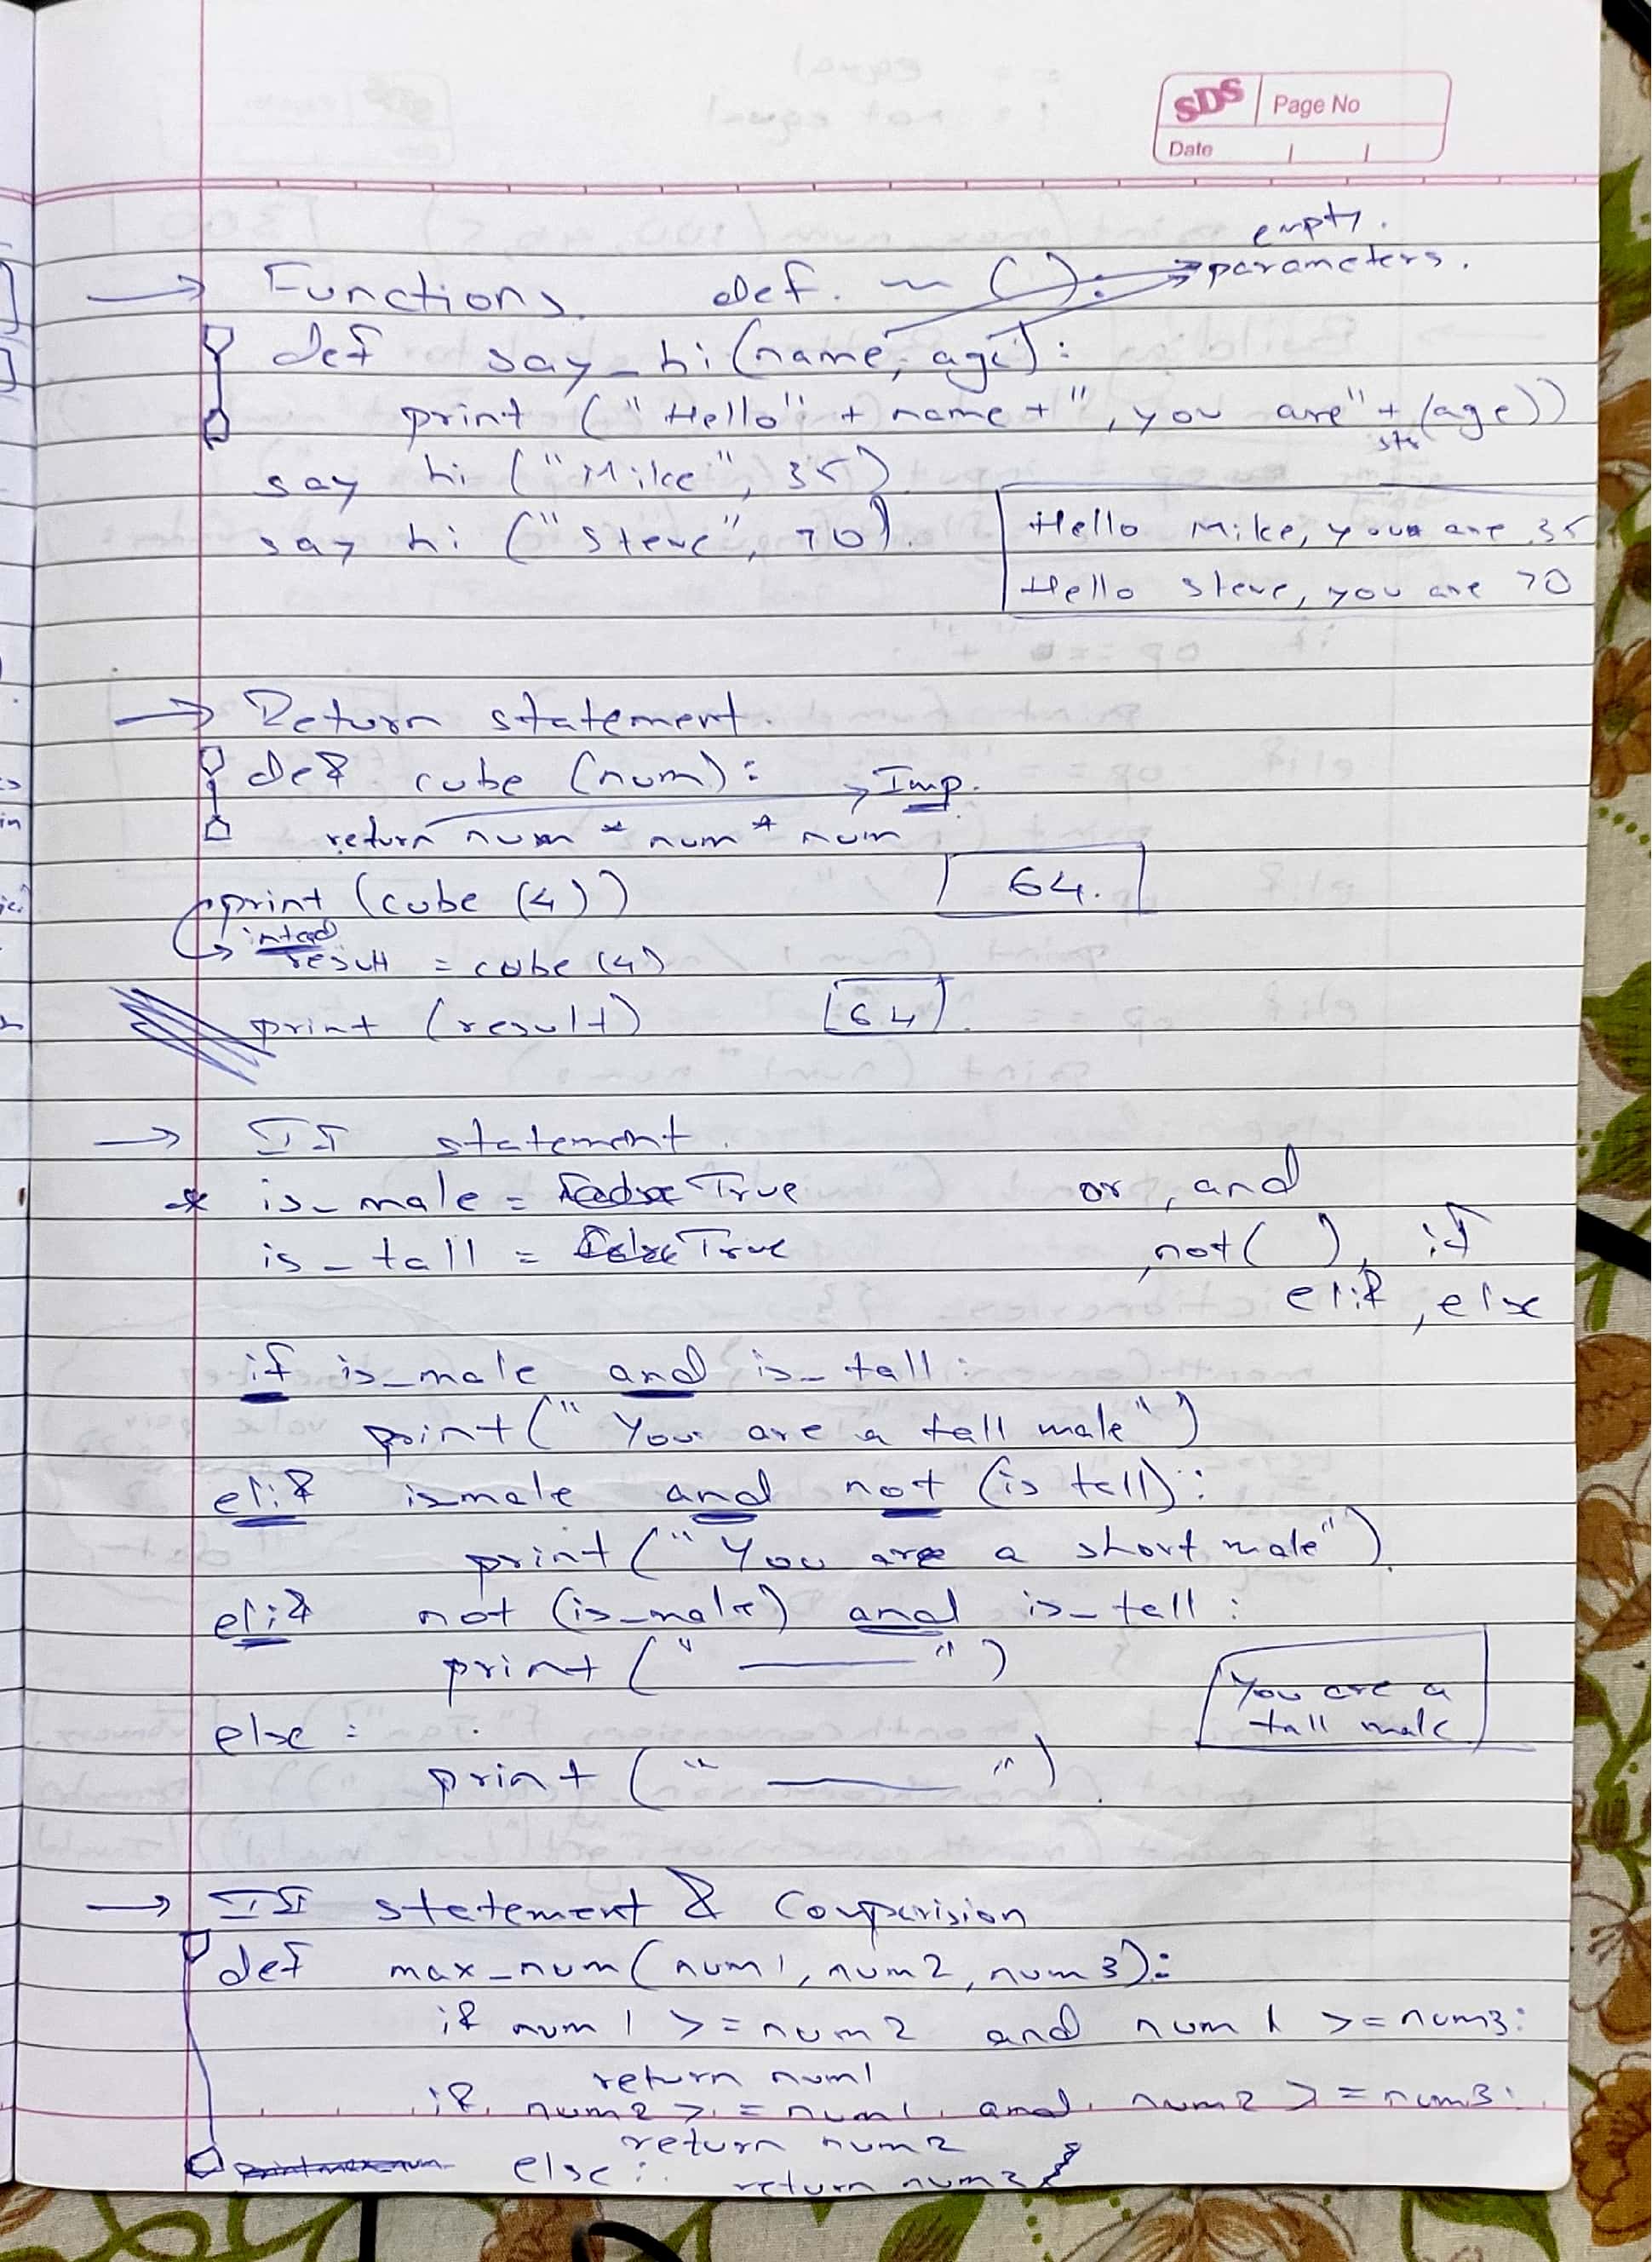 SDS Page No
Date
empty.
→ Functions. def. ~ (): → parameters.
def say_hi(name, age):
print ("Hello" + name + ", you are" + str(age))
say hi ("Mike", 35)
say hi ("Steve", 70).
Hello Mike, you are 35
Hello Steve, you are 70
→ Return statement.
def cube (num): → Imp.
return num * num * num
print (cube (4)) 64.
result = cube (4)
print (result) 64.
→ If statement.
* is_male = True or, and
is_tall = True , not( ), if
elif, else
if is_male and is_tall:
print(" You are a tall male")
elif ismale and not (is tall):
print(" You are a short male").
elif not (is_male) and is_tall:
print (" ——— ")
You are a
tall male
else:
print (" ——— ").
→ If statement & Comparision
def max_num(num1, num2, num3):
if num1 >= num2 and num1 >= num3:
return num1
if num2 >= num1 and num2 >= num3:
return num2
else:
return num3